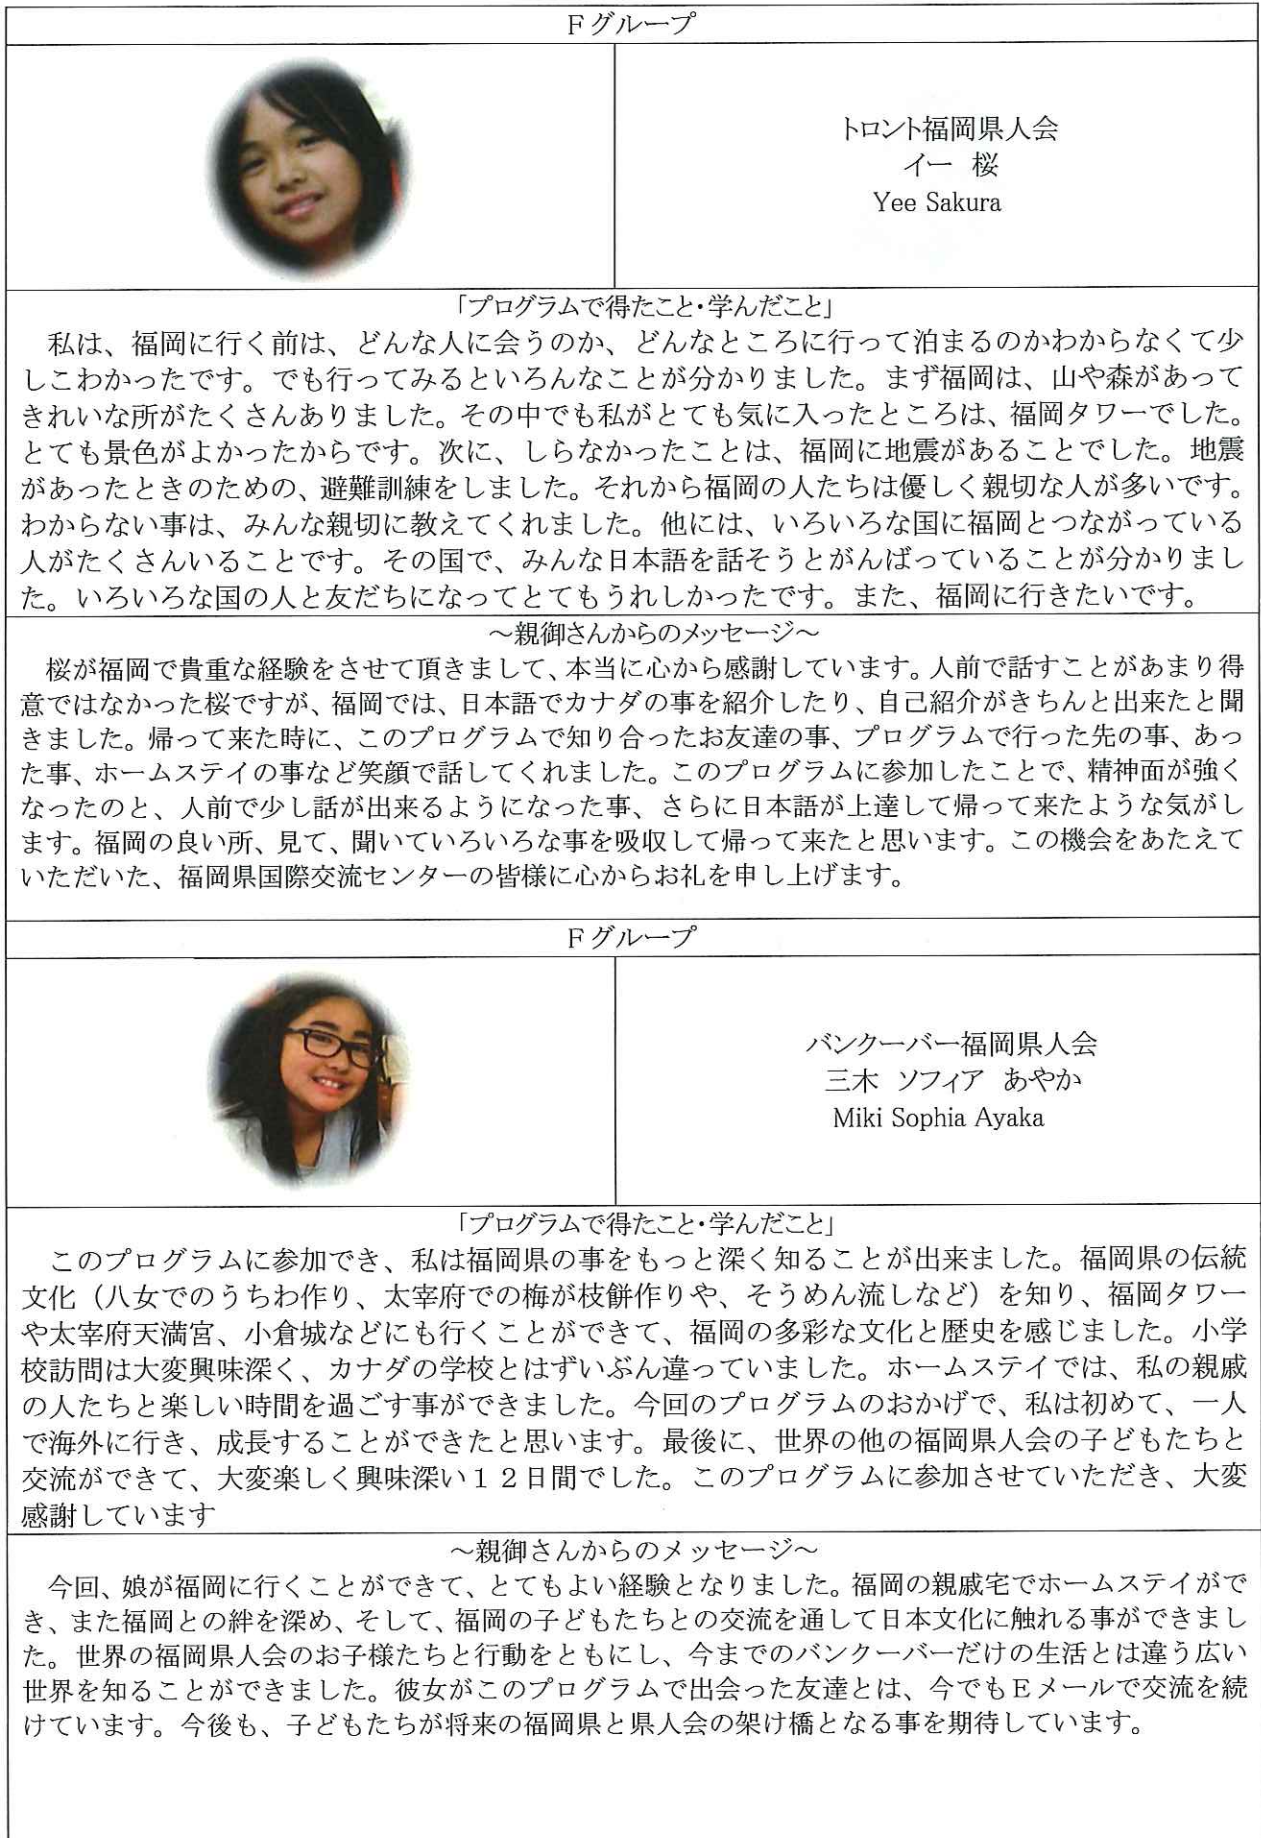 Fグループ
トロント福岡県人会
イー 桜
Yee Sakura
「プログラムで得たこと・学んだこと」
私は、福岡に行く前は、どんな人に会うのか、どんなところに行って泊まるのかわからなくて少
しこわかったです。でも行ってみるといろんなことが分かりました。まず福岡は、山や森があって
きれいな所がたくさんありました。その中でも私がとても気に入ったところは、福岡タワーでした。
とても景色がよかったからです。次に、しらなかったことは、福岡に地震があることでした。地震
があったときのための、避難訓練をしました。それから福岡の人たちは優しく親切な人が多いです。
わからない事は、みんな親切に教えてくれました。他には、いろいろな国に福岡とつながっている
人がたくさんいることです。その国で、みんな日本語を話そうとがんばっていることが分かりまし
た。いろいろな国の人と友だちになってとてもうれしかったです。また、福岡に行きたいです。
～親御さんからのメッセージ～
桜が福岡で貴重な経験をさせて頂きまして、本当に心から感謝しています。人前で話すことがあまり得
意ではなかった桜ですが、福岡では、日本語でカナダの事を紹介したり、自己紹介がきちんと出来たと聞
きました。帰って来た時に、このプログラムで知り合ったお友達の事、プログラムで行った先の事、あっ
た事、ホームステイの事など笑顔で話してくれました。このプログラムに参加したことで、精神面が強く
なったのと、人前で少し話が出来るようになった事、さらに日本語が上達して帰って来たような気がし
ます。福岡の良い所、見て、聞いていろいろな事を吸収して帰って来たと思います。この機会をあたえて
いただいた、福岡県国際交流センターの皆様に心からお礼を申し上げます。
Fグループ
バンクーバー福岡県人会
三木 ソフィア あやか
Miki Sophia Ayaka
「プログラムで得たこと・学んだこと」
このプログラムに参加でき、私は福岡県の事をもっと深く知ることが出来ました。福岡県の伝統
文化（八女でのうちわ作り、太宰府での梅が枝餅作りや、そうめん流しなど）を知り、福岡タワー
や太宰府天満宮、小倉城などにも行くことができて、福岡の多彩な文化と歴史を感じました。小学
校訪問は大変興味深く、カナダの学校とはずいぶん違っていました。ホームステイでは、私の親戚
の人たちと楽しい時間を過ごす事ができました。今回のプログラムのおかげで、私は初めて、一人
で海外に行き、成長することができたと思います。最後に、世界の他の福岡県人会の子どもたちと
交流ができて、大変楽しく興味深い１２日間でした。このプログラムに参加させていただき、大変
感謝しています
～親御さんからのメッセージ～
今回、娘が福岡に行くことができて、とてもよい経験となりました。福岡の親戚宅でホームステイがで
き、また福岡との絆を深め、そして、福岡の子どもたちとの交流を通して日本文化に触れる事ができまし
た。世界の福岡県人会のお子様たちと行動をともにし、今までのバンクーバーだけの生活とは違う広い
世界を知ることができました。彼女がこのプログラムで出会った友達とは、今でもＥメールで交流を続
けています。今後も、子どもたちが将来の福岡県と県人会の架け橋となる事を期待しています。